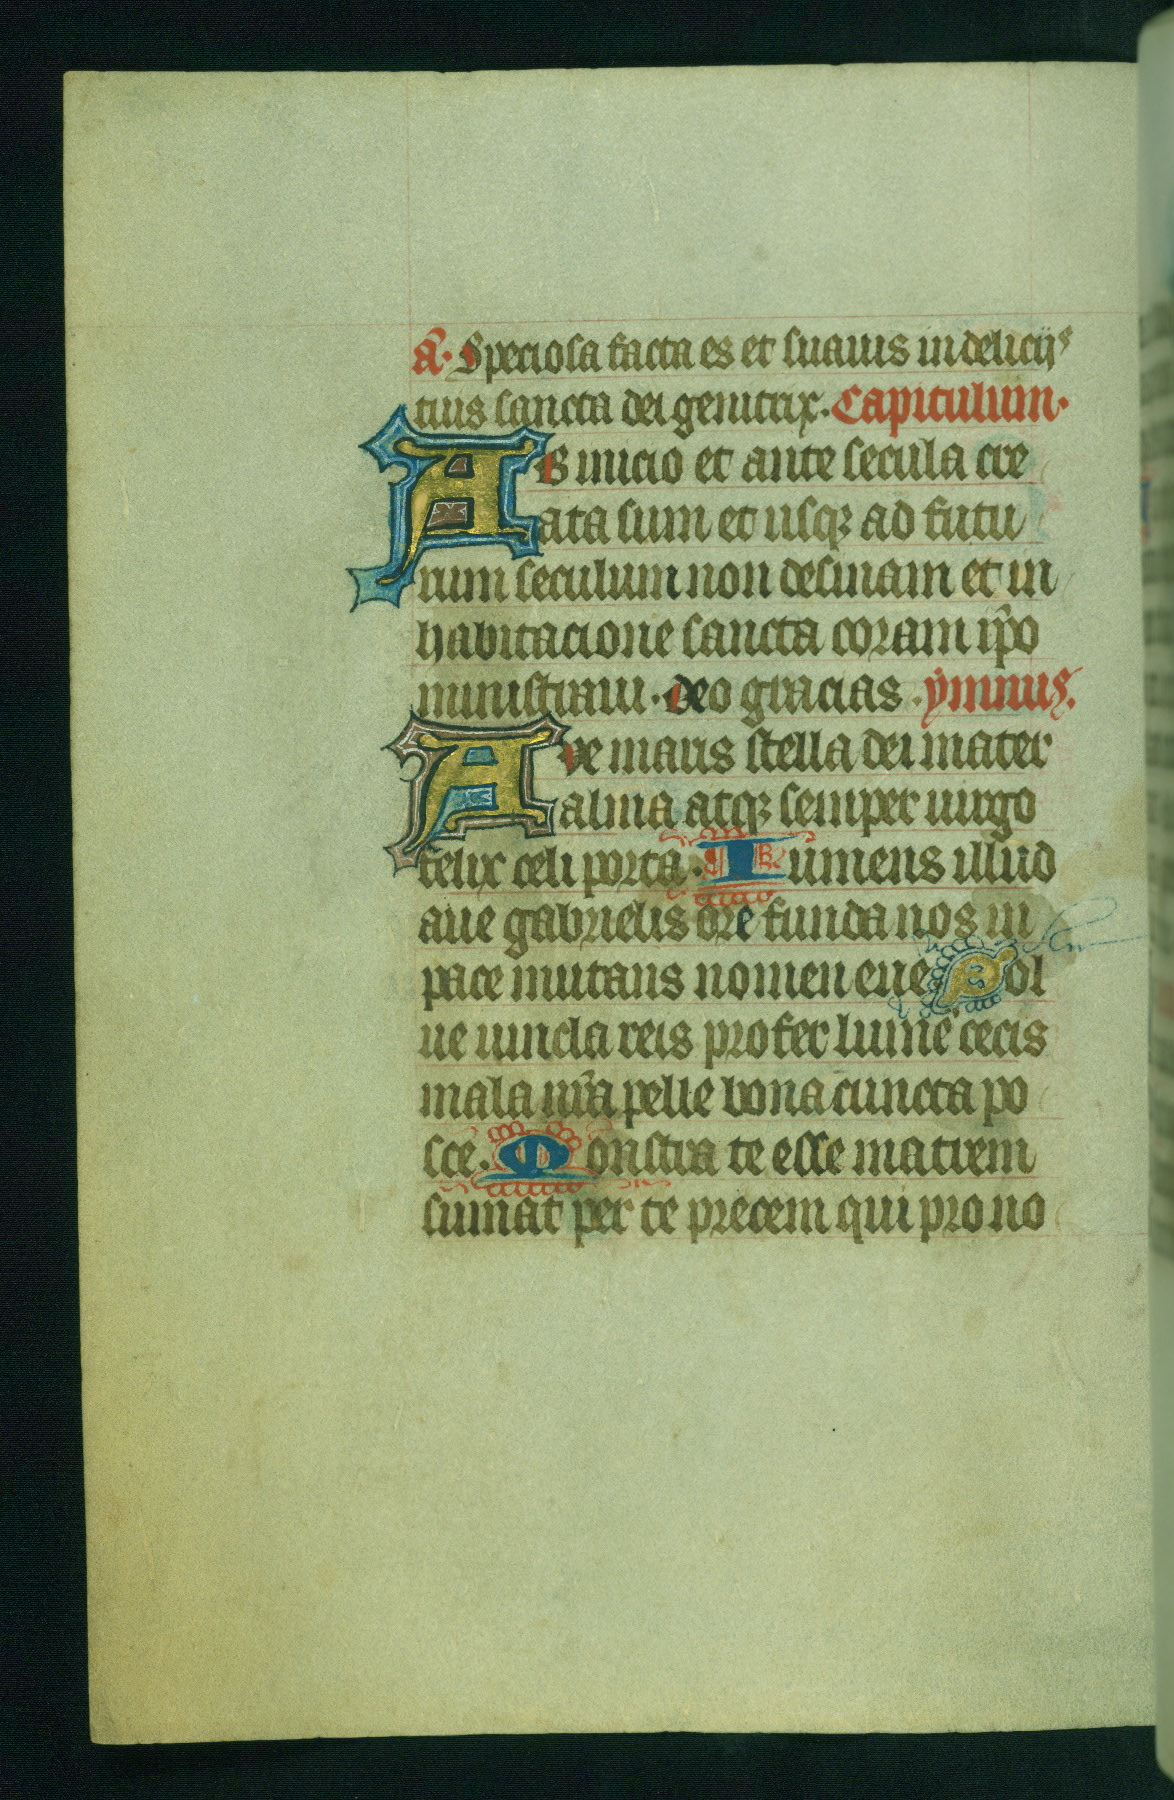 a̅. Speciosa facta es et suauis in delicijs
tuis sancta dei genitrix. Capitulum.
AB inicio et ante secula cre
ata sum et usqꝫ ad futu
rum seculum non desinam et in
habitacione sancta coram ip̅o
ministraui. deo gracias. ymnus.
Aue maris stella dei mater
alma atqꝫ semper uirgo
felix celi porta. Iumens illud
aue gabrielis ore funda nos in
pace mutans nomen eue. Sol
ue uincla reis profer lume̅ cecis
mala nr̅a pelle bona cuncta po
sce. Monstra te esse matrem
sumat per te precem qui pro no